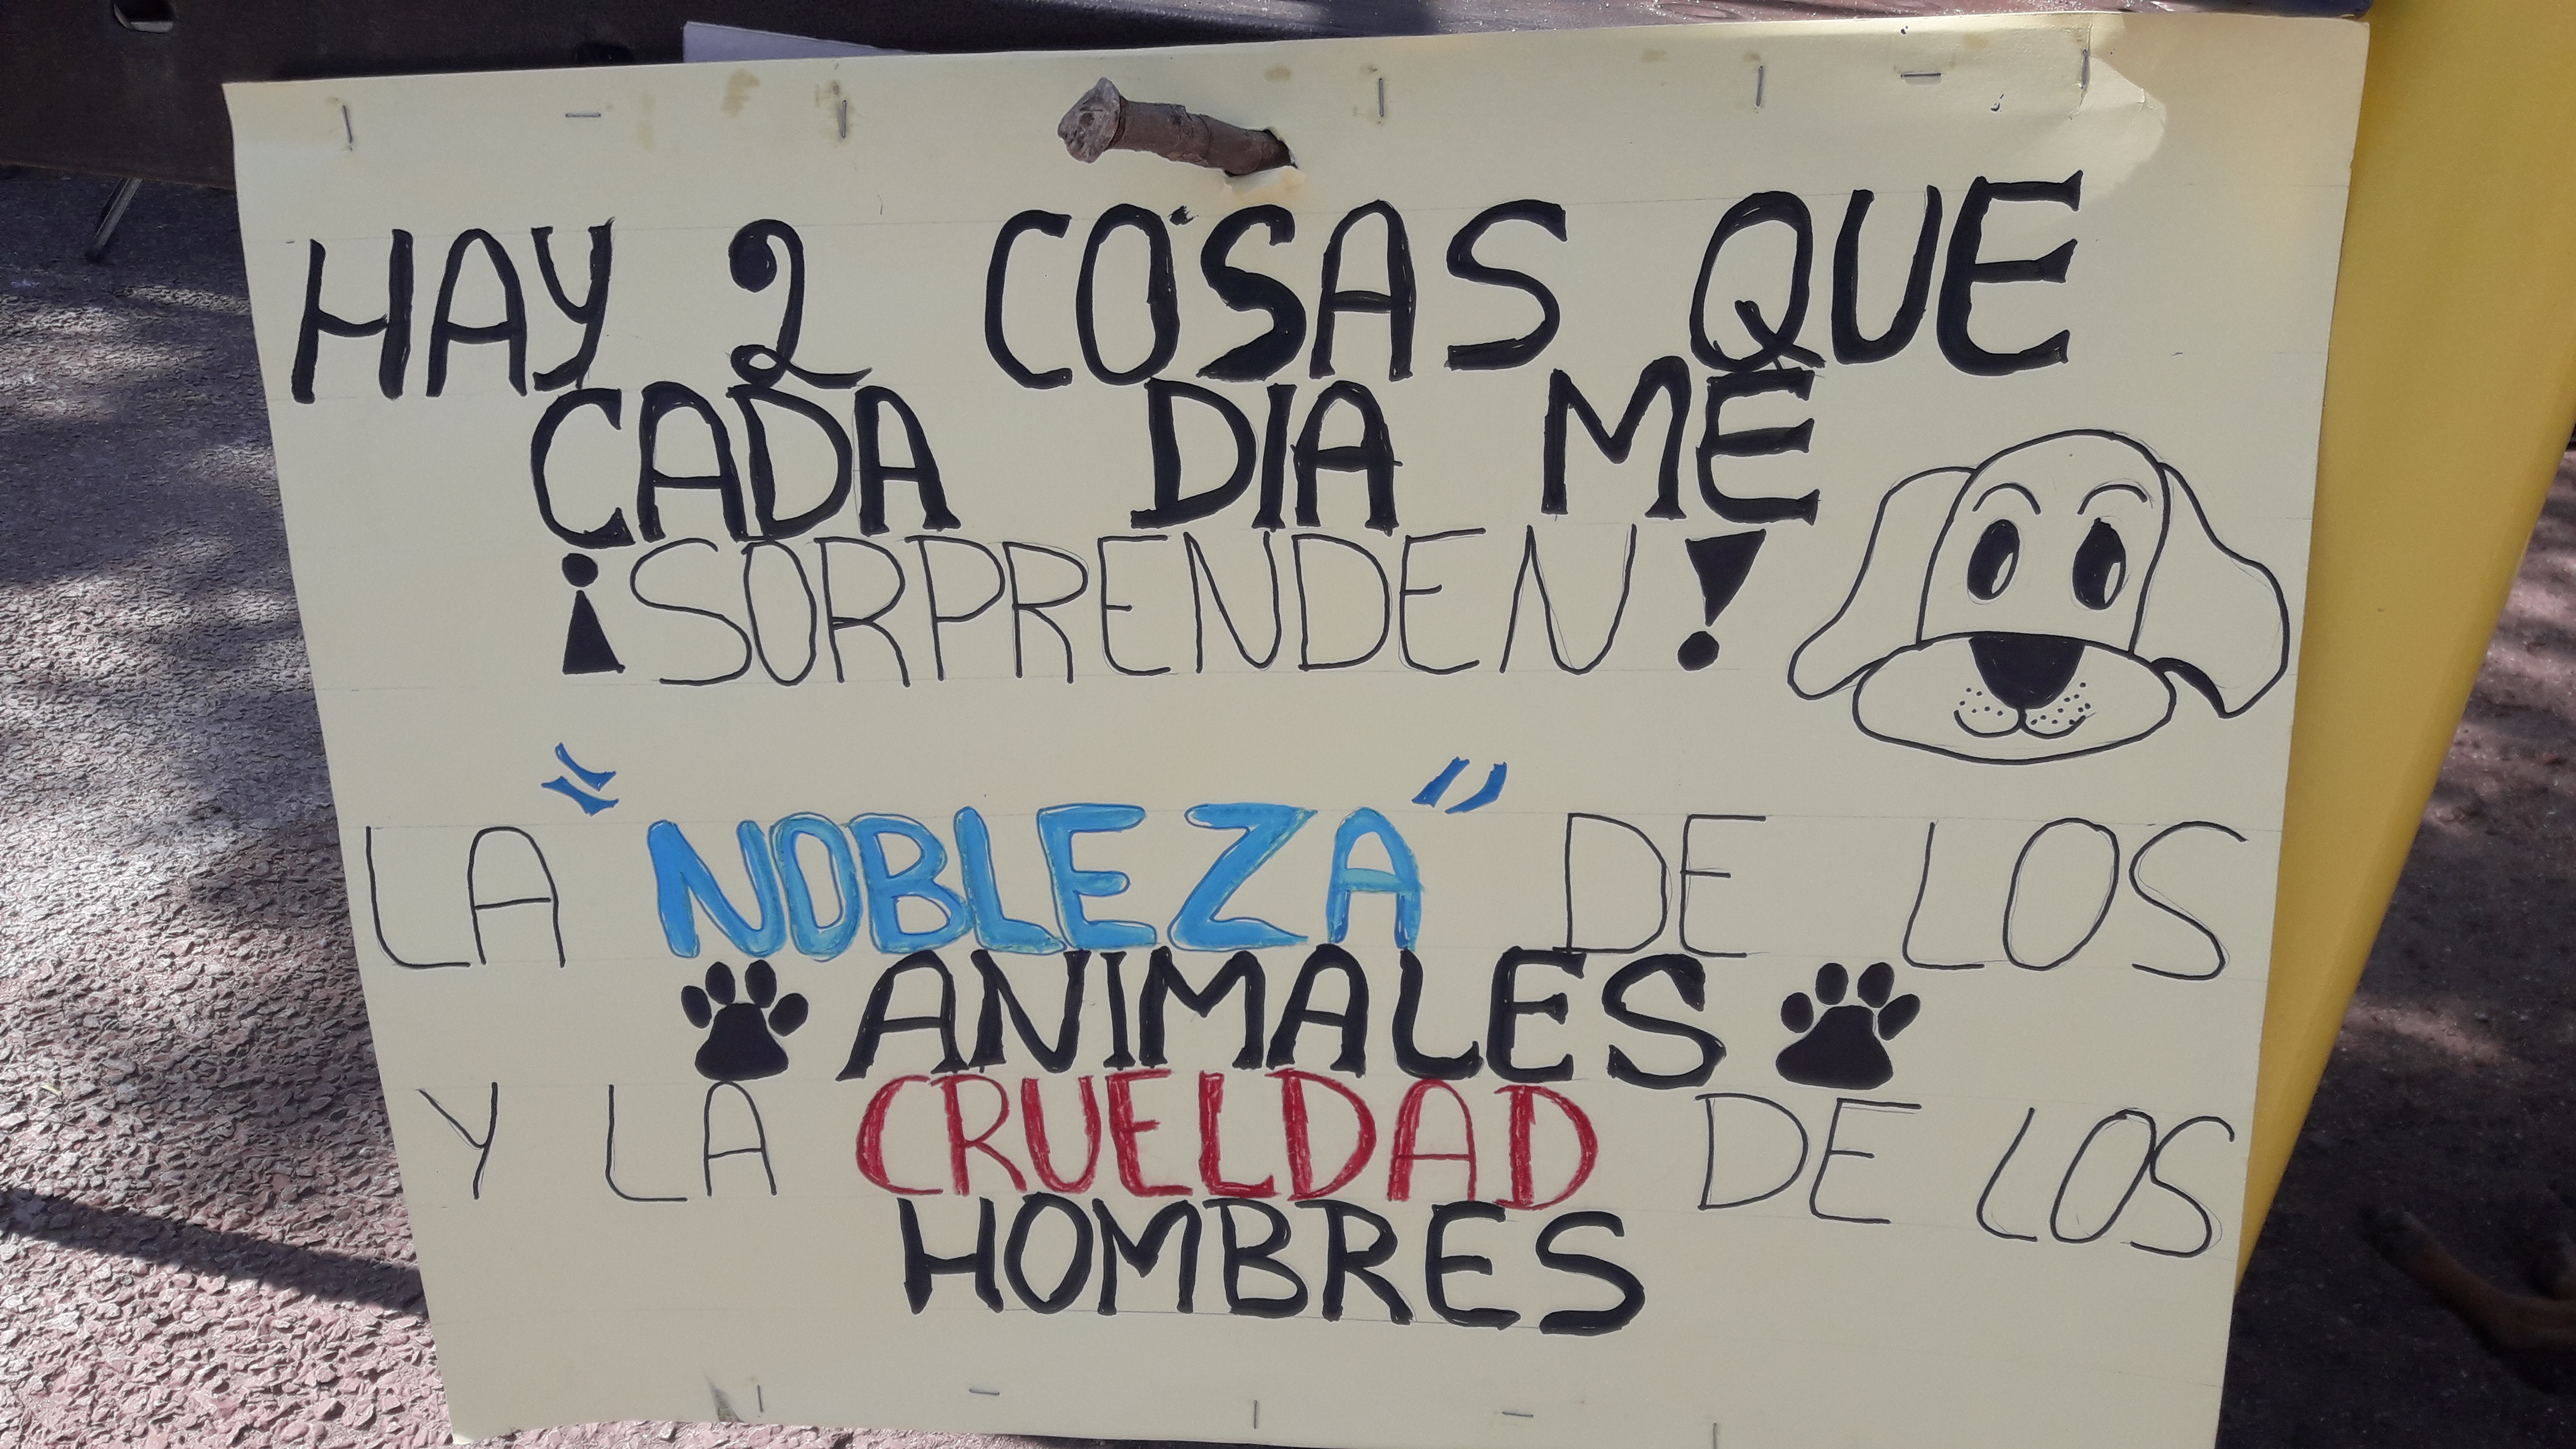 HAY 2 COSAS QUE
CADA DIA ME
¡SORPRENDEN!
LA "NOBLEZA" DE LOS
ANIMALES
Y LA CRUELDAD DE LOS
HOMBRES